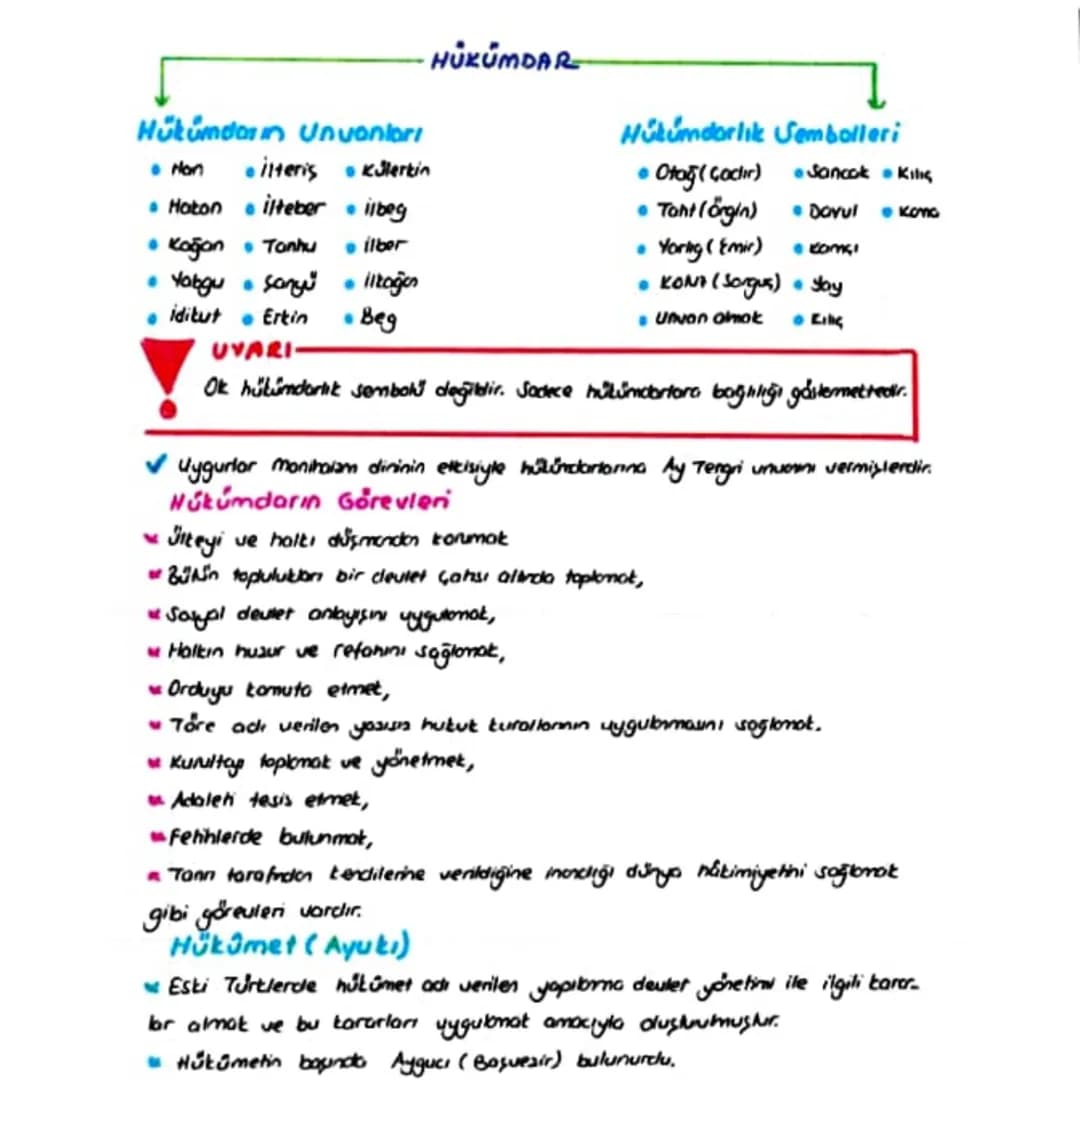 HÜKÜMDAR
Hükümdarın Unvanları
Hükümdarlık Sembolleri
• Han • İlteriş • Külerkin
• Otağ (Çadır) • Sancak • Kılıç
• Hakan • İlteber • ilbeg
• Taht (Örgin) • Davul
• Kağan • Tanhu • ilber
• Yarlıg (Emir) • Kamçı
• Yabgu • Şanyü
• Kotuz (Sorguç) • Yay
• İdikut • Erkin • Beg
• Unvan almak • Kılıç
UYARI
Ok hükümdarlık sembolü değildir. Sadece hükümdarlara bağlılığı göstermektedir.
Uygurlar Manihaizm dininin etkisiyle hükümdarlarına Ay Tengri unvanını vermişlerdir.
Hükümdarın Görevleri
Ülkeyi ve halkı düşmandan korumak
Bütün toplulukları bir devlet çatısı altında toplamak,
Sosyal devlet anlayışını uygulamak,
Halkın huzur ve refahını sağlamak,
Orduyu komuta etmek,
Töre adı verilen yazısız hukuk kurallarının uygulanmasını sağlamak.
Kurultayı toplamak ve yönetmek,
Adaleti tesis etmek,
Fetihlerde bulunmak,
Tanrı tarafından kendilerine verildiğine inandığı dünya hâkimiyetini sağlamak
gibi görevleri vardır.
Hükûmet (Ayukı)
Eski Türklerde hükûmet adı verilen yapılanma devlet yönetimi ile ilgili karar-
lar almak ve bu kararları uygulamak amacıyla oluşturulmuştur.
Hükûmetin başında Aygucı (Başvezir) bulunurdu.